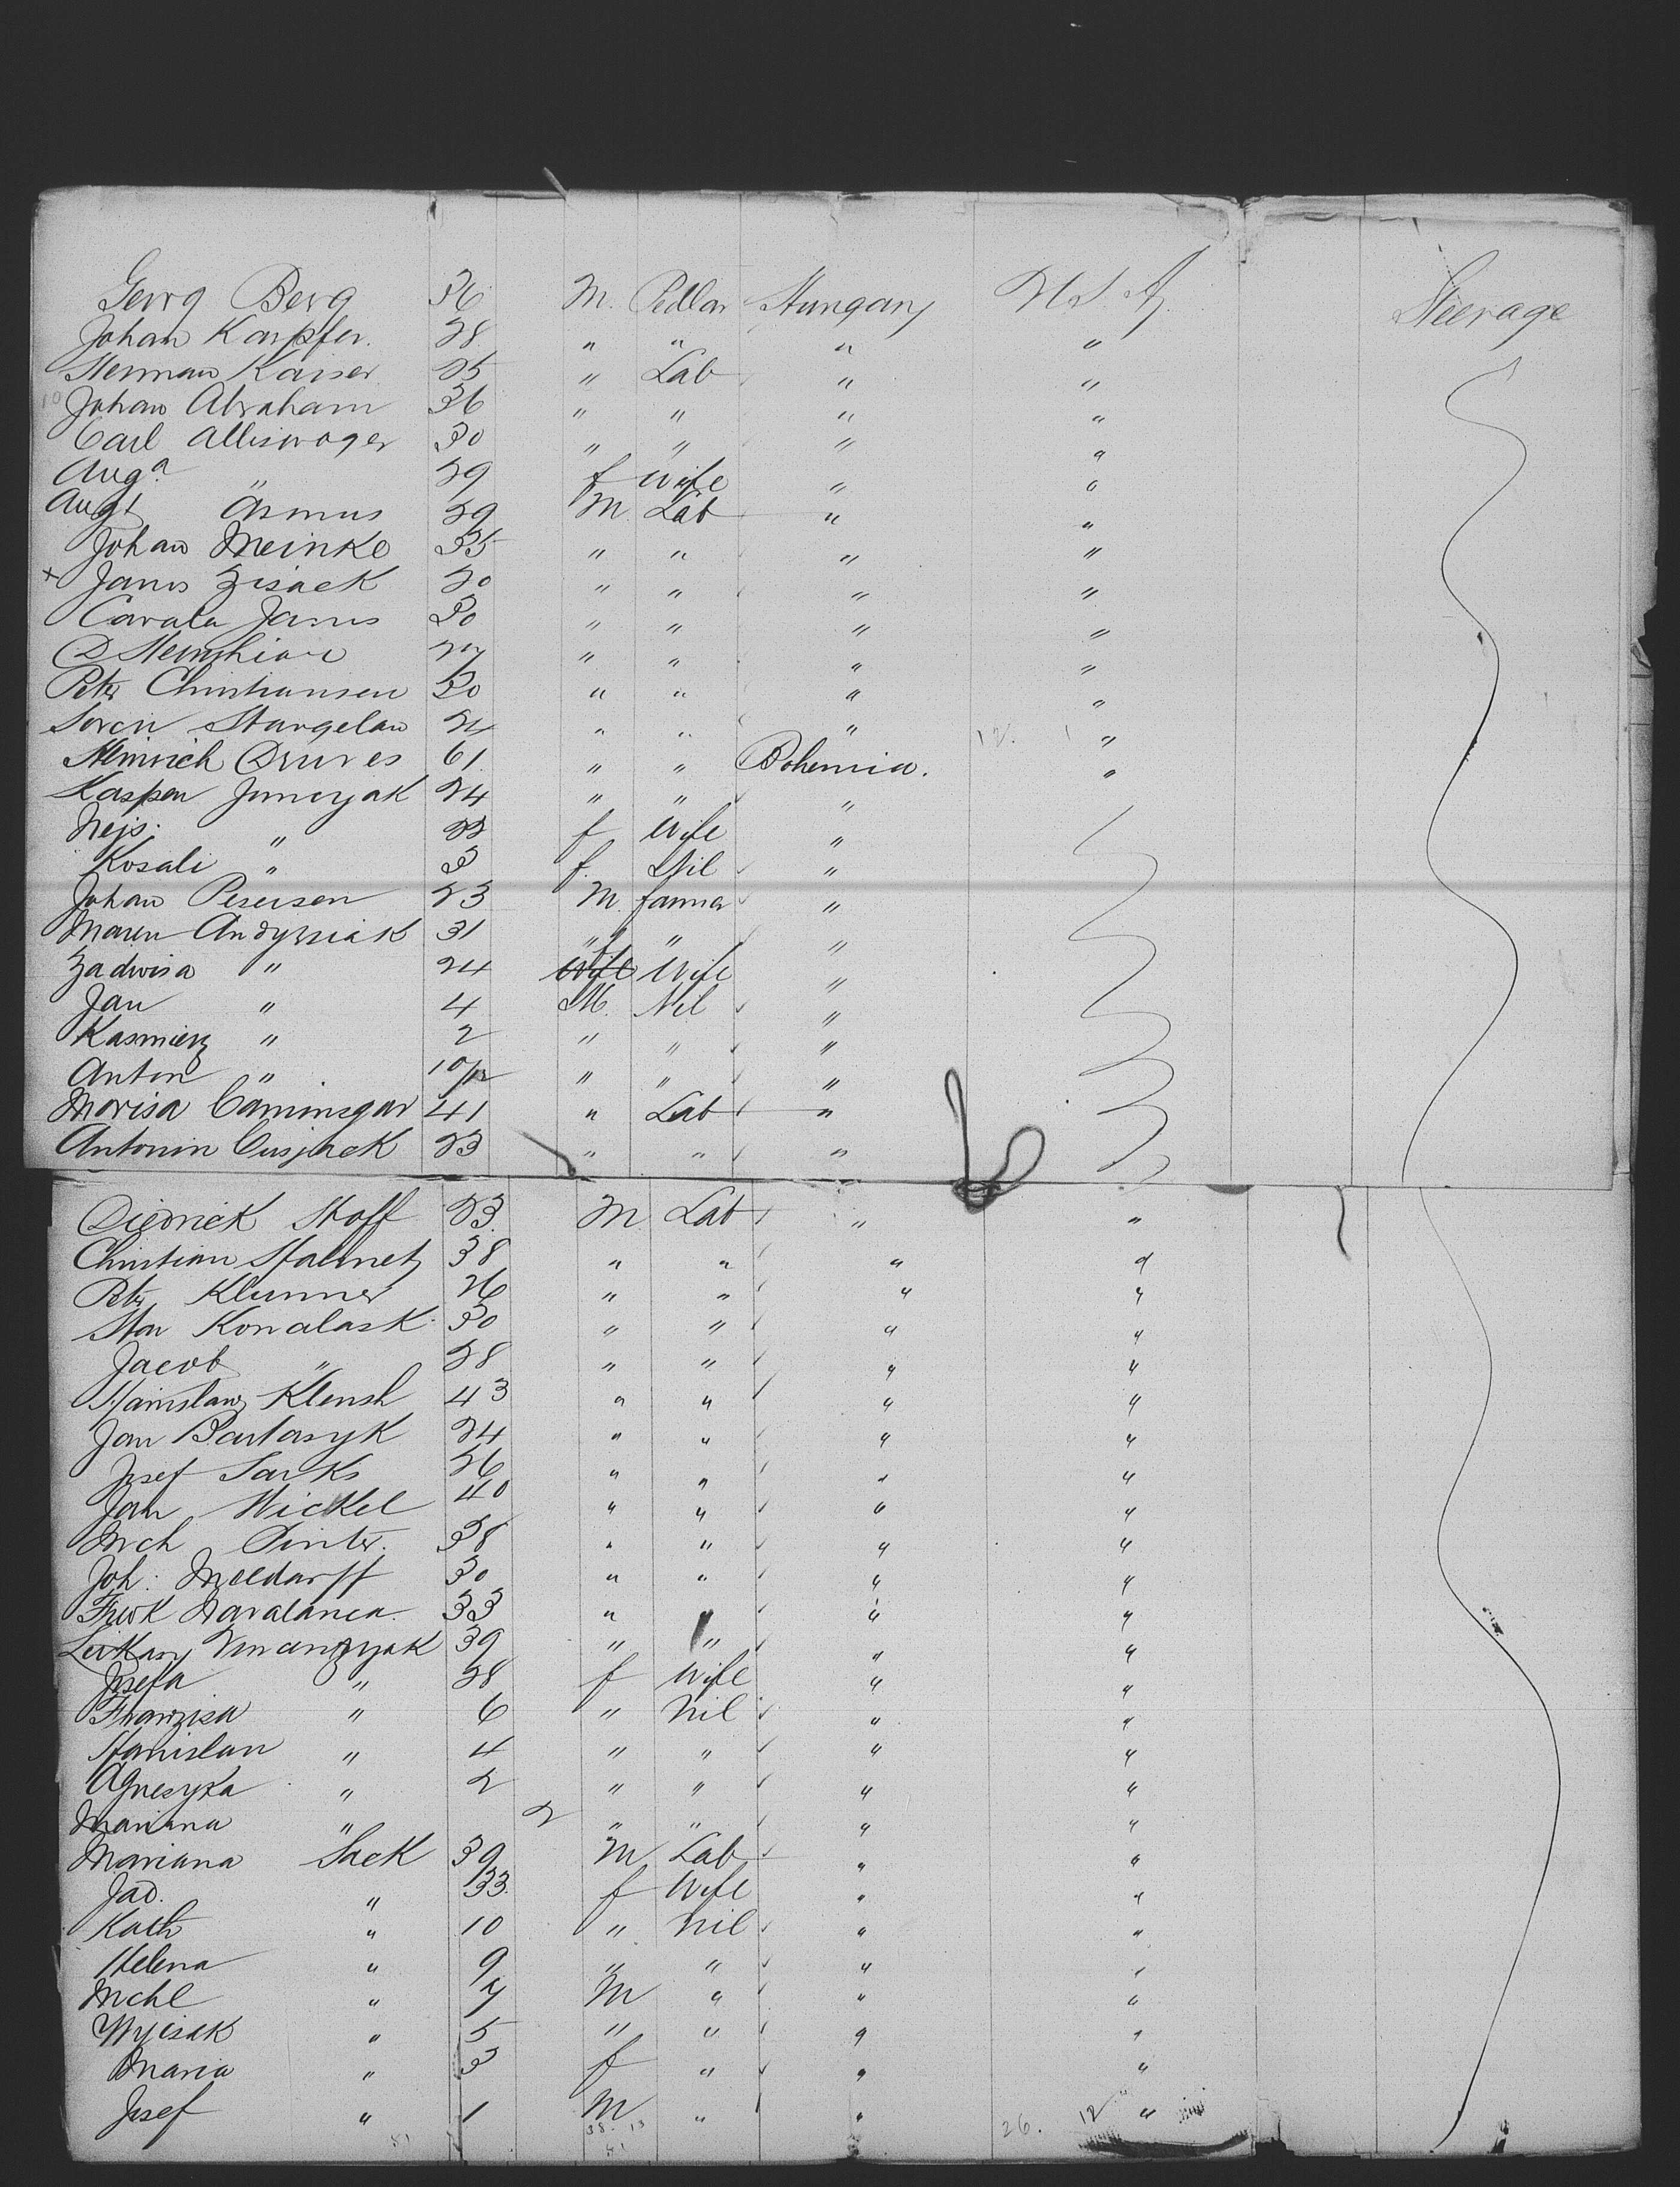 Georg Berg 36 M. Pedlar Hungary U.S.A. Steerage
Johan Karpfer. 28 " " " "
Herman Kaiser 25 " Lab " "
Johan Abraham 36 " " " "
Carl Alliswager 30 " " " "
Aug.a " 29 f Wife " "
Augt Asmus 39 M Lab " "
Johan Meinke 35 " " " "
x Janos Zisack 20 " " " "
Cavala Janos 30 " " " "
D 27 " " " "
Peter Christiansen 30 " " " "
Soren Stangelan 24 " " " 12. "
Heinrich Druves 61 " " Bohemia. "
Kasper Juncyak 24 " " "
Nejs: " 22 f Wife "
Rosali " 3 f. Nil "
Johan Petersen 23 M. farmer "
Maren Andyrsiak 31 " " "
Zadwisa " 24 Wife Wife "
Jan " 4 M. Nil "
Kasmierz " 2 " " "
Anton " 10/12 " " "
Morisa Caminsgar 41 " Lab "
Antonin Cusjack 23 " " "
Diedrick Stoff 23. M Lab " "
Christian Stalmetz 38 " " " "
Peter Klunner 26 " " " "
Stan Konalask 30 " " " "
Jacob " 28 " " " "
Stanislaw Klensh 43 " " " "
Jan Bartasyk 24 " " " "
Josef Sarks 26 " " " "
Jan Wickel 40 " " " "
Mch Pinter. 38 " " " "
Joh: Meldarff 30 " " " "
Fredk Navalanca. 33 " " " "
39 " " " "
Josefa " 28 f Wife " "
Franzisa " 6 " Nil " "
Stanislan " 4 " " " "
Agnesyka " 2 " " " "
Mariana " 2 " " " "
Mariana Sack 39 M Lab " "
Jad. " 33. f Wife " "
Kath " 10 " Nil " "
Helena " 9 " " " "
Mchl " 7 M " " "
Wyisak " 5 " " " "
Maria " 3 f " " "
Josef " 1 M " " 26. 12 "
51 38. 13
51